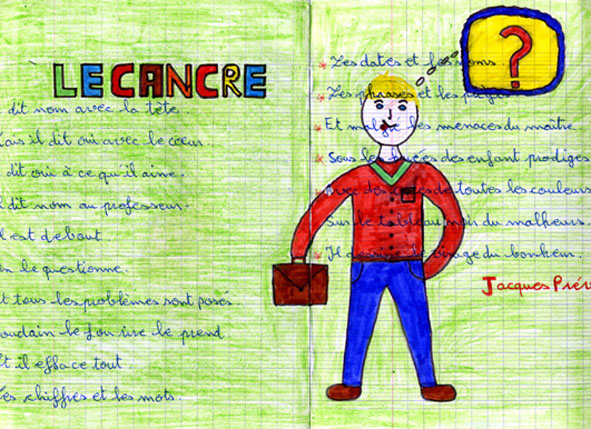 LE CANCRE
dit nom avec la tête.
ais il dit oui avec le cœur.
dit oui à ce qu'il aime.
l dit nom au professeur.
l est debout.
n le questionne.
t tous les problèmes sont posés.
oudain le fou rire le prend
t il efface tout.
es chiffres et les mots.
?
Les dates et les noms
Les phrases et les pièges
Et malgré les menaces du maître.
Sous les huées des enfant prodiges
Avec des craies de toutes les couleurs
Sur le tableau noir du malheurs.
Il dessine le visage du bonheur.
Jacques Prév